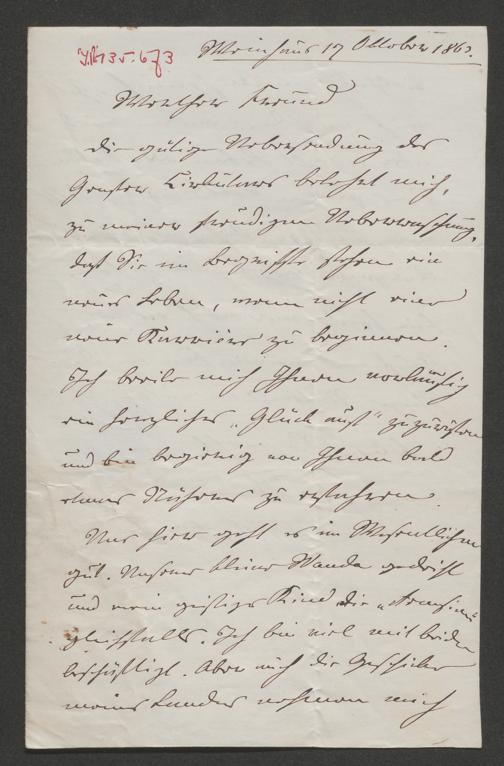 I.N. 135.673
Weinhaus 17 October 186
Werther Freund
die gütige Uebersendung des
Genfer Cirkulars belehrt mich,
zu meiner freudigen Ueberraschung,
daß Sie im Begriffe stehen ein
neues Leben, wenn nicht eine
neue Karrière zu beginnen.
Ich beeile mich Ihnen vorläufig
ein herzliches „Glück auf“ zuzurufen
und bin begierig von Ihnen bald
etwas Näheres zu erfahren.
Uns hier geht es im Wesentlichen
gut. Unsere kleine Wanda gedeiht
und mein geistiges Kind die
gleichfalls. Ich bin viel mit beiden
beschäftigt. Aber auch die Geschicke
meines Landes nehmen mich